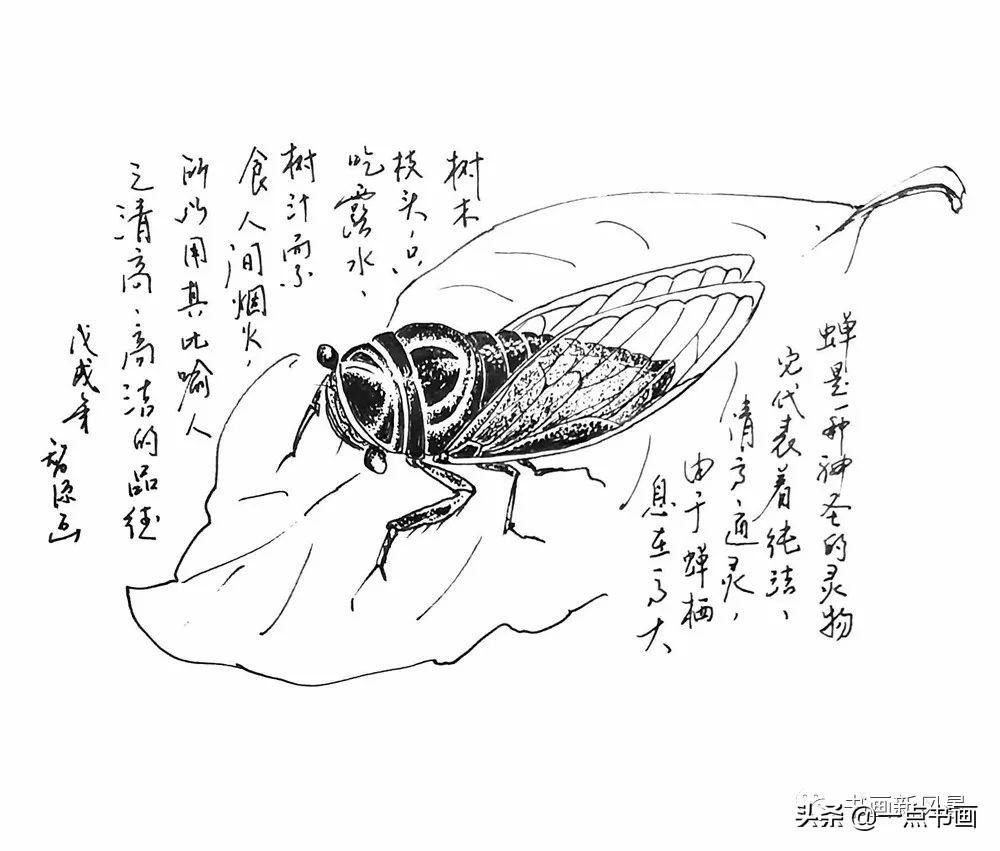 蝉是一种神圣的灵物
它代表着纯洁、
清高、通灵，
由于蝉栖
息在高大
树木
枝头，只
吃露水、
树汁而不
食人间烟火，
所以用其比喻人
之清高、高洁的品德
戊戌年
画
书画新风景
头条 @一点书画